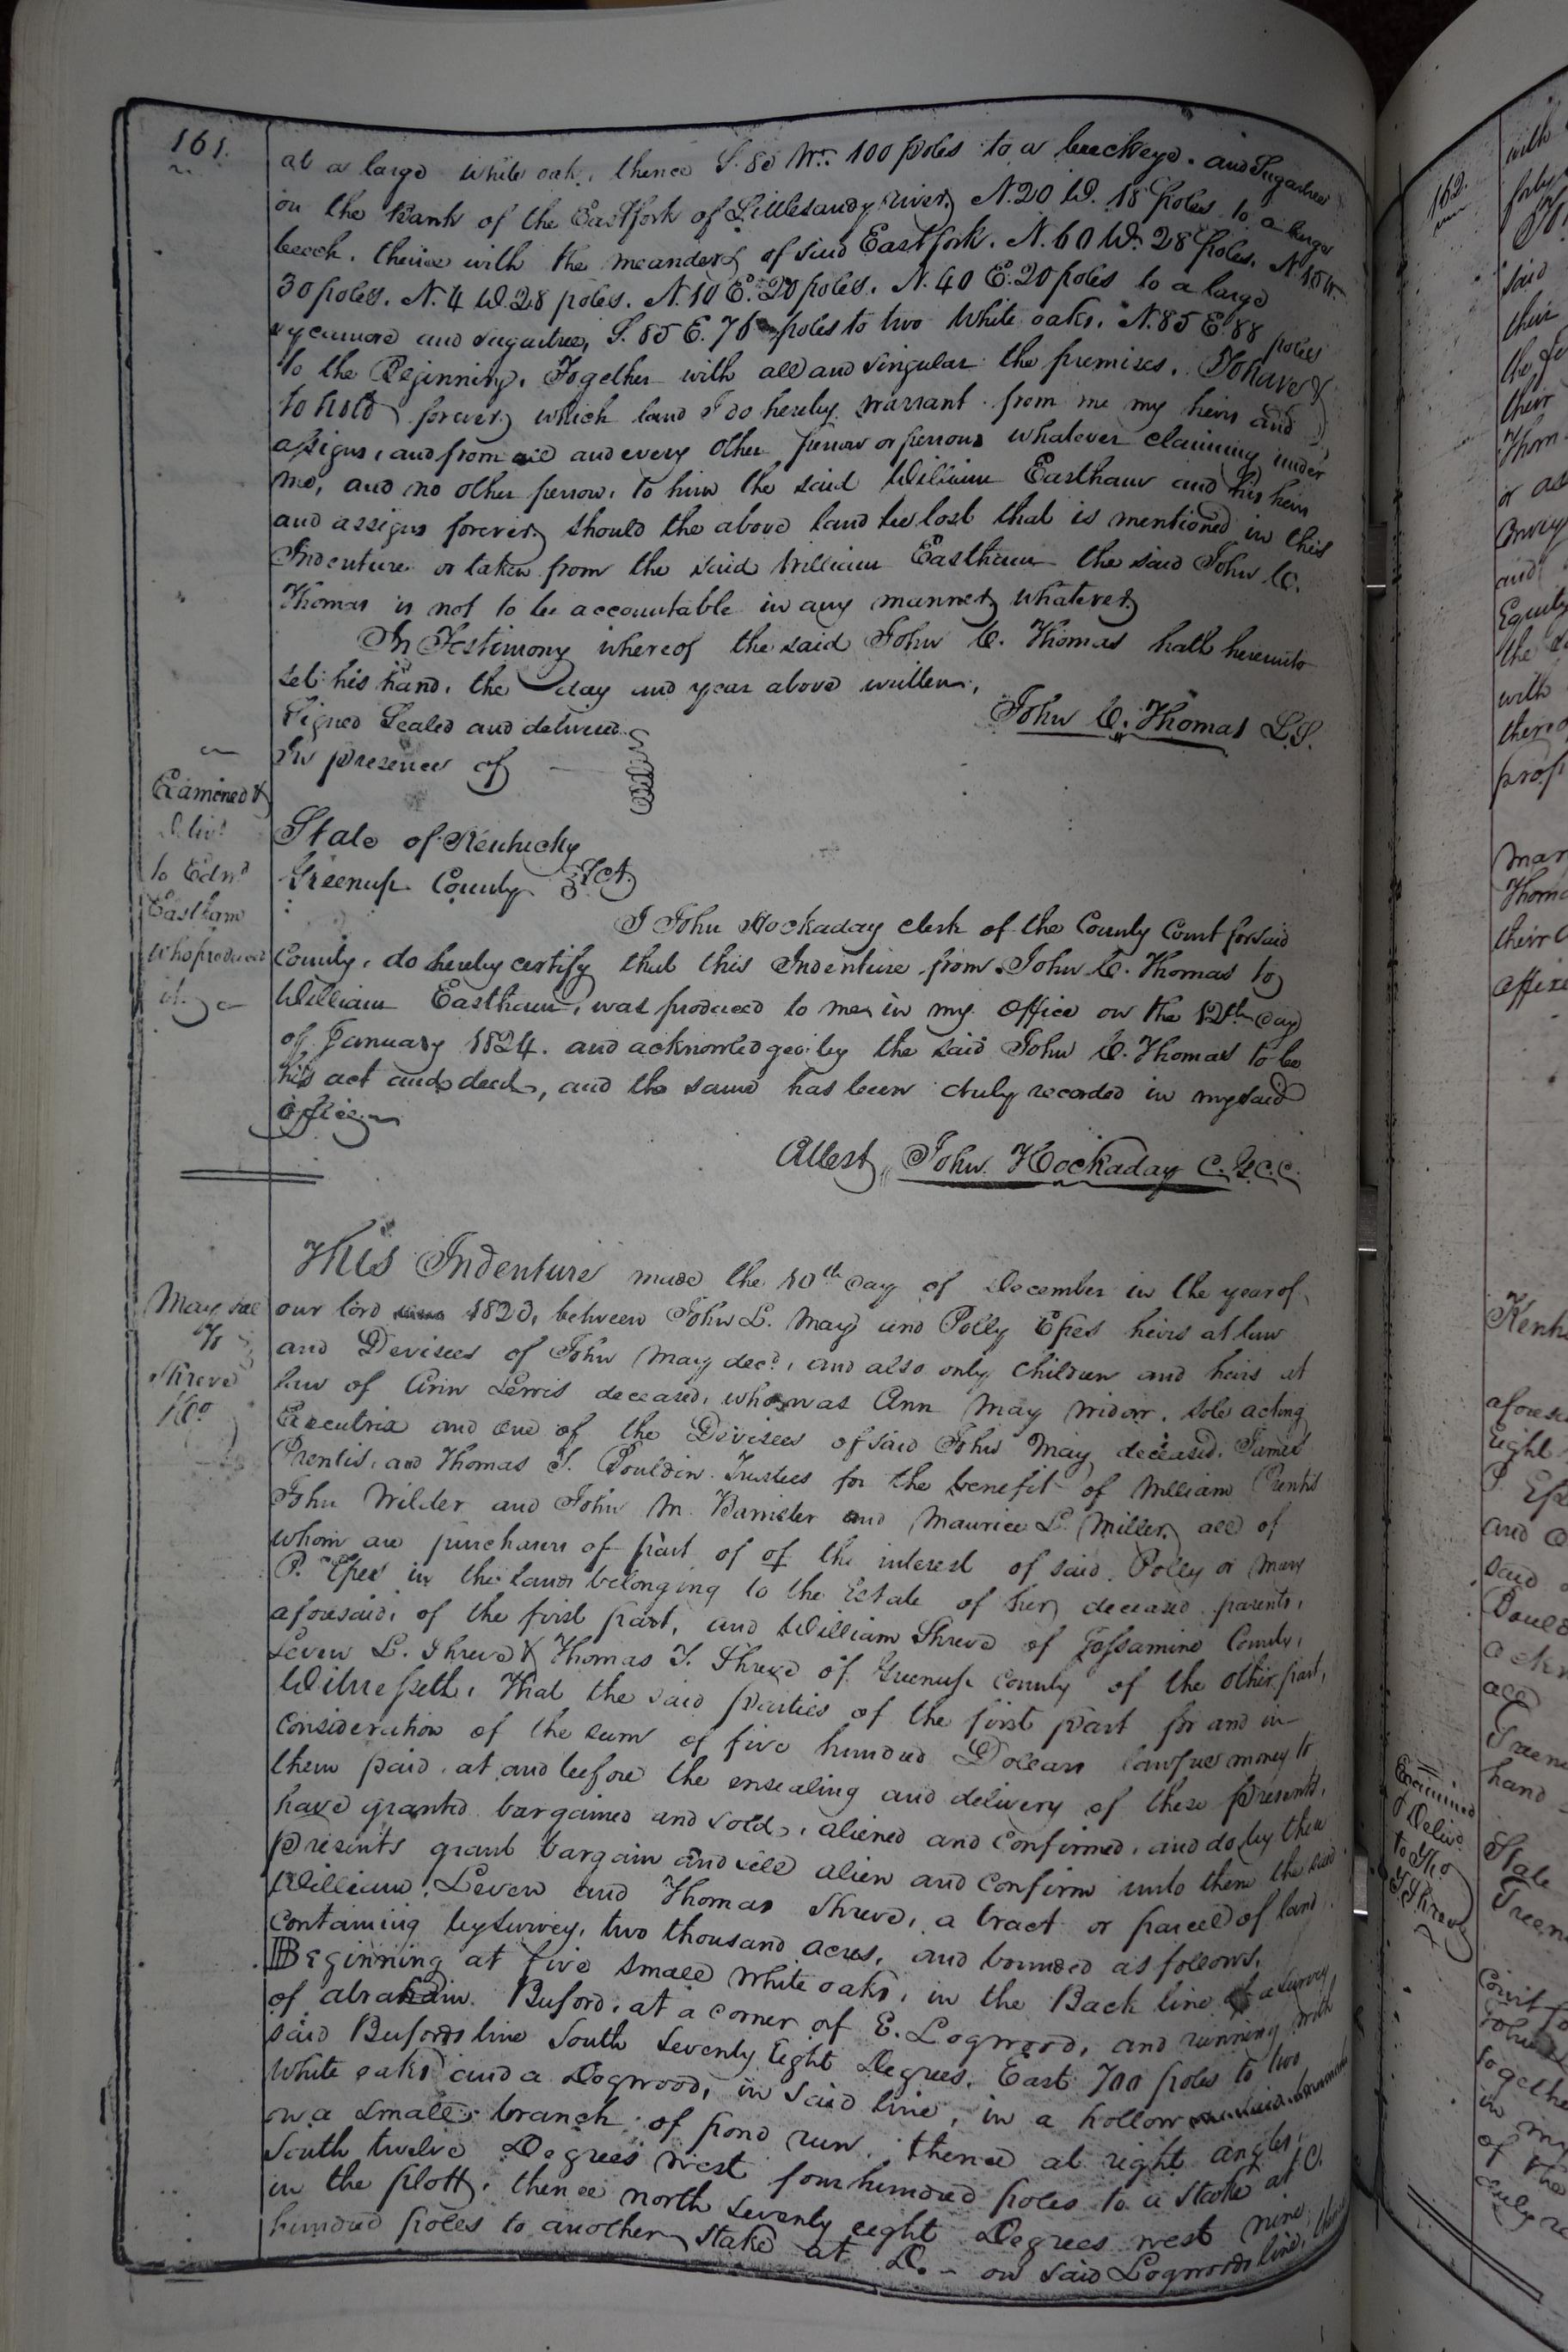 161.
at a large white oak, thence S. 80 Wt. 100 poles to a buckeye. and Sugartree
on the Bank of the Eastfork of Littlesandy river, N. 20 W. 18 poles to a large
beech. thence with the meanders of said Eastfork. N. 60 W. 28 poles. N 15 W.
30 poles. N. 4 W. 28 poles. N. 10 E. 20 poles. N. 40 E. 20 poles to a large
sycamore and sugartree, S. 85 E. 76 poles to two White oaks. N. 85 E 88 poles
to the Beginning. Together with all and singular the premises. To have &
to hold forever, which land I do hereby warrant from me my heirs and
assigns, and from all and every other person or persons whatever claiming under
me, and no other person, to him the said William Eastham and his heirs
and assigns forever, should the above land be lost that is mentioned in this
Indenture or taken from the said William Eastham the said John C.
Thomas is not to be accountable in any manner, whatever,
In Testimony whereof the said John C. Thomas hath hereunto
set his hand, the day and year above written,
John C. Thomas L.S.
Signed Sealed and delivered
In presence of
Examined &
Delivd
to Edmd
Eastham
who produced
it.
State of Kentucky
Greenup County Sct.
I John Hockaday clerk of the County Court for said
County, do hereby certify that this Indenture from John C. Thomas to
William Eastham, was produced to me in my Office on the 12th day
of January 1824. and acknowledged by the said John C. Thomas to be
his act and deed, and the same has been duly recorded in my said
office
Attest, John Hockaday C. G.C.C.
May &al
To
Shreve
&Co
This Indenture made the 10th day of December in the year of
our lord 1823, between John L. May and Polly Epes heirs at law
and Devisees of John May decd, and also only children and heirs at
law of Ann Lewis deceased, who was Ann May widow, sole acting
Executrix and one of the Devisees of said John May deceased. James
Prentis, and Thomas T. Bouldin Trustees for the benefit of William Prentis
John Wilder and John M. Banister and Maurice L. Miller, all of
whom are purchasers of part of of the interest of said Polly or Mary
P. Epes in the lands belonging to the Estate of her deceased parents,
aforesaid, of the first part, and William Shreve of Jessamine County,
Leven L. Shreve & Thomas T. Shreve of Greenup County of the other part,
Witnesseth, That the said parties of the first part for and in
Consideration of the sum of five hundred Dollars lawful money to
them paid, at and before the ensealing and delivery of these presents,
have granted bargained and sold, aliened and Confirmed, and do by these
presents grant bargain and sell alien and Confirm unto them the said
William, Leven and Thomas Shreve, a tract or parcel of land
Containing by survey, two thousand acres, and bounded as follows,
Beginning at five small white oaks, in the Back line of a survey
of abraham Buford, at a corner of E. Logwood, and running with
said Bufords line South Seventy Eight Degrees, East 700 poles to two
white oaks and a Dogwood, in said line, in a hollow
on a small branch of pond run. thence at right angles,
South twelve Degrees West four hundred poles to a stake at C.
in the plott, thence north seventy eight Degrees west nine
hundred poles to another stake at D. - on said Logwoods line, thence
162.
with
said
their
their
Thom
or as
and
Equity
with
there
prop
mar
Thoma
their
affixe
Examined
& Delivd
to Tho
T Shreve
Kent
aforesa
Eight
P. Ep
and
said
Bould
ackn
all
Green
hand
State
Green
Court
John
together
in my
of the
duly re